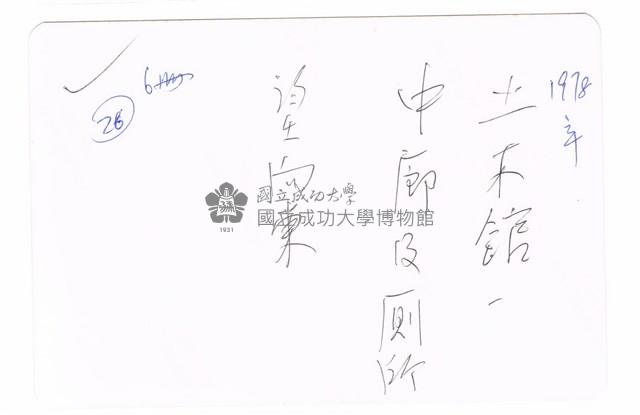 1978年
土木館一
中廊及廁所
望向東
26
國立成功大學
國立成功大學博物館
1931